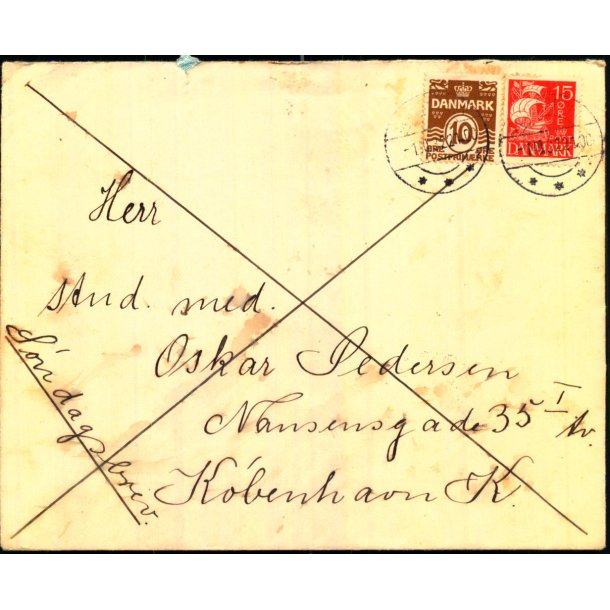 DANMARK
10
ØRE ØRE
POSTFRIMÆRKE
15
ØRE
DANMARK
Herr
stud. med.
Oskar Pedersen
Nansensgade 35 I tv.
København K
Søndagsbrev.